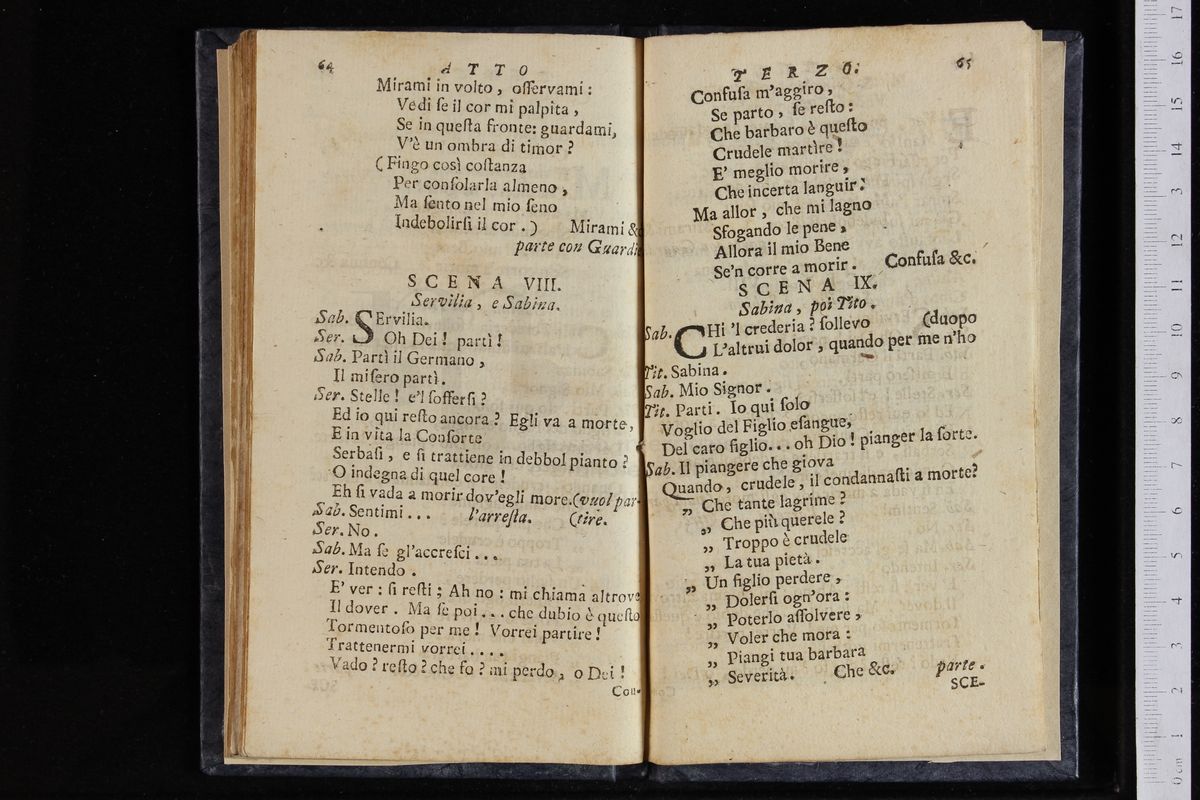 64
ATTO
Mirami in volto, oſſervami:
Vedi ſe il cor mi palpita,
Se in queſta fronte: guardami,
V'è un ombra di timor?
(Fingo così coſtanza
Per conſolarla almeno,
Ma ſento nel mio ſeno
Indebolirſi il cor.) Mirami &
parte con Guardie
SCENA VIII.
Servilia, e Sabina.
Sab. SErvilia.
Ser. Oh Dei! partì!
Sab. Partì il Germano,
Il miſero partì.
Ser. Stelle! e'l ſofferſi?
Ed io qui reſto ancora? Egli va a morte,
E in vita la Conſorte
Serbaſi, e ſi trattiene in debbol pianto?
O indegna di quel core!
Eh ſi vada a morir dov'egli more.(vuol par-
Sab. Sentimi... l'arreſta. (tire.
Ser. No.
Sab. Ma ſe gl'accreſci...
Ser. Intendo.
E' ver: ſi reſti; Ah no: mi chiama altrove
Il dover. Ma ſe poi... che dubio è queſto
Tormentoſo per me! Vorrei partire!
Trattenermi vorrei....
Vado? reſto? che fo? mi perdo, o Dei!
Con-
TERZO.
65
Confuſa m'aggiro,
Se parto, ſe reſto:
Che barbaro è queſto
Crudele martìre!
E' meglio morire,
Che incerta languir.
Ma allor, che mi lagno
Sfogando le pene,
Allora il mio Bene
Se'n corre a morir. Confuſa &c.
SCENA IX.
Sabina, poi Tito.
Sab. CHi 'l crederia? ſollevo (duopo
L'altrui dolor, quando per me n'ho
Tit. Sabina.
Sab. Mio Signor.
Tit. Parti. Io qui ſolo
Voglio del Figlio eſangue,
Del caro figlio... oh Dio! pianger la ſorte.
Sab. Il piangere che giova
Quando, crudele, il condannaſti a morte?
„ Che tante lagrime?
„ Che più querele?
„ Troppo è crudele
„ La tua pietà.
„ Un figlio perdere,
„ Dolerſi ogn'ora:
„ Poterlo aſſolvere,
„ Voler che mora:
„ Piangi tua barbara
„ Severità. Che &c. parte.
SCE-
0 cm 1 2 3 4 5 6 7 8 9 10 11 12 13 14 15 16 17